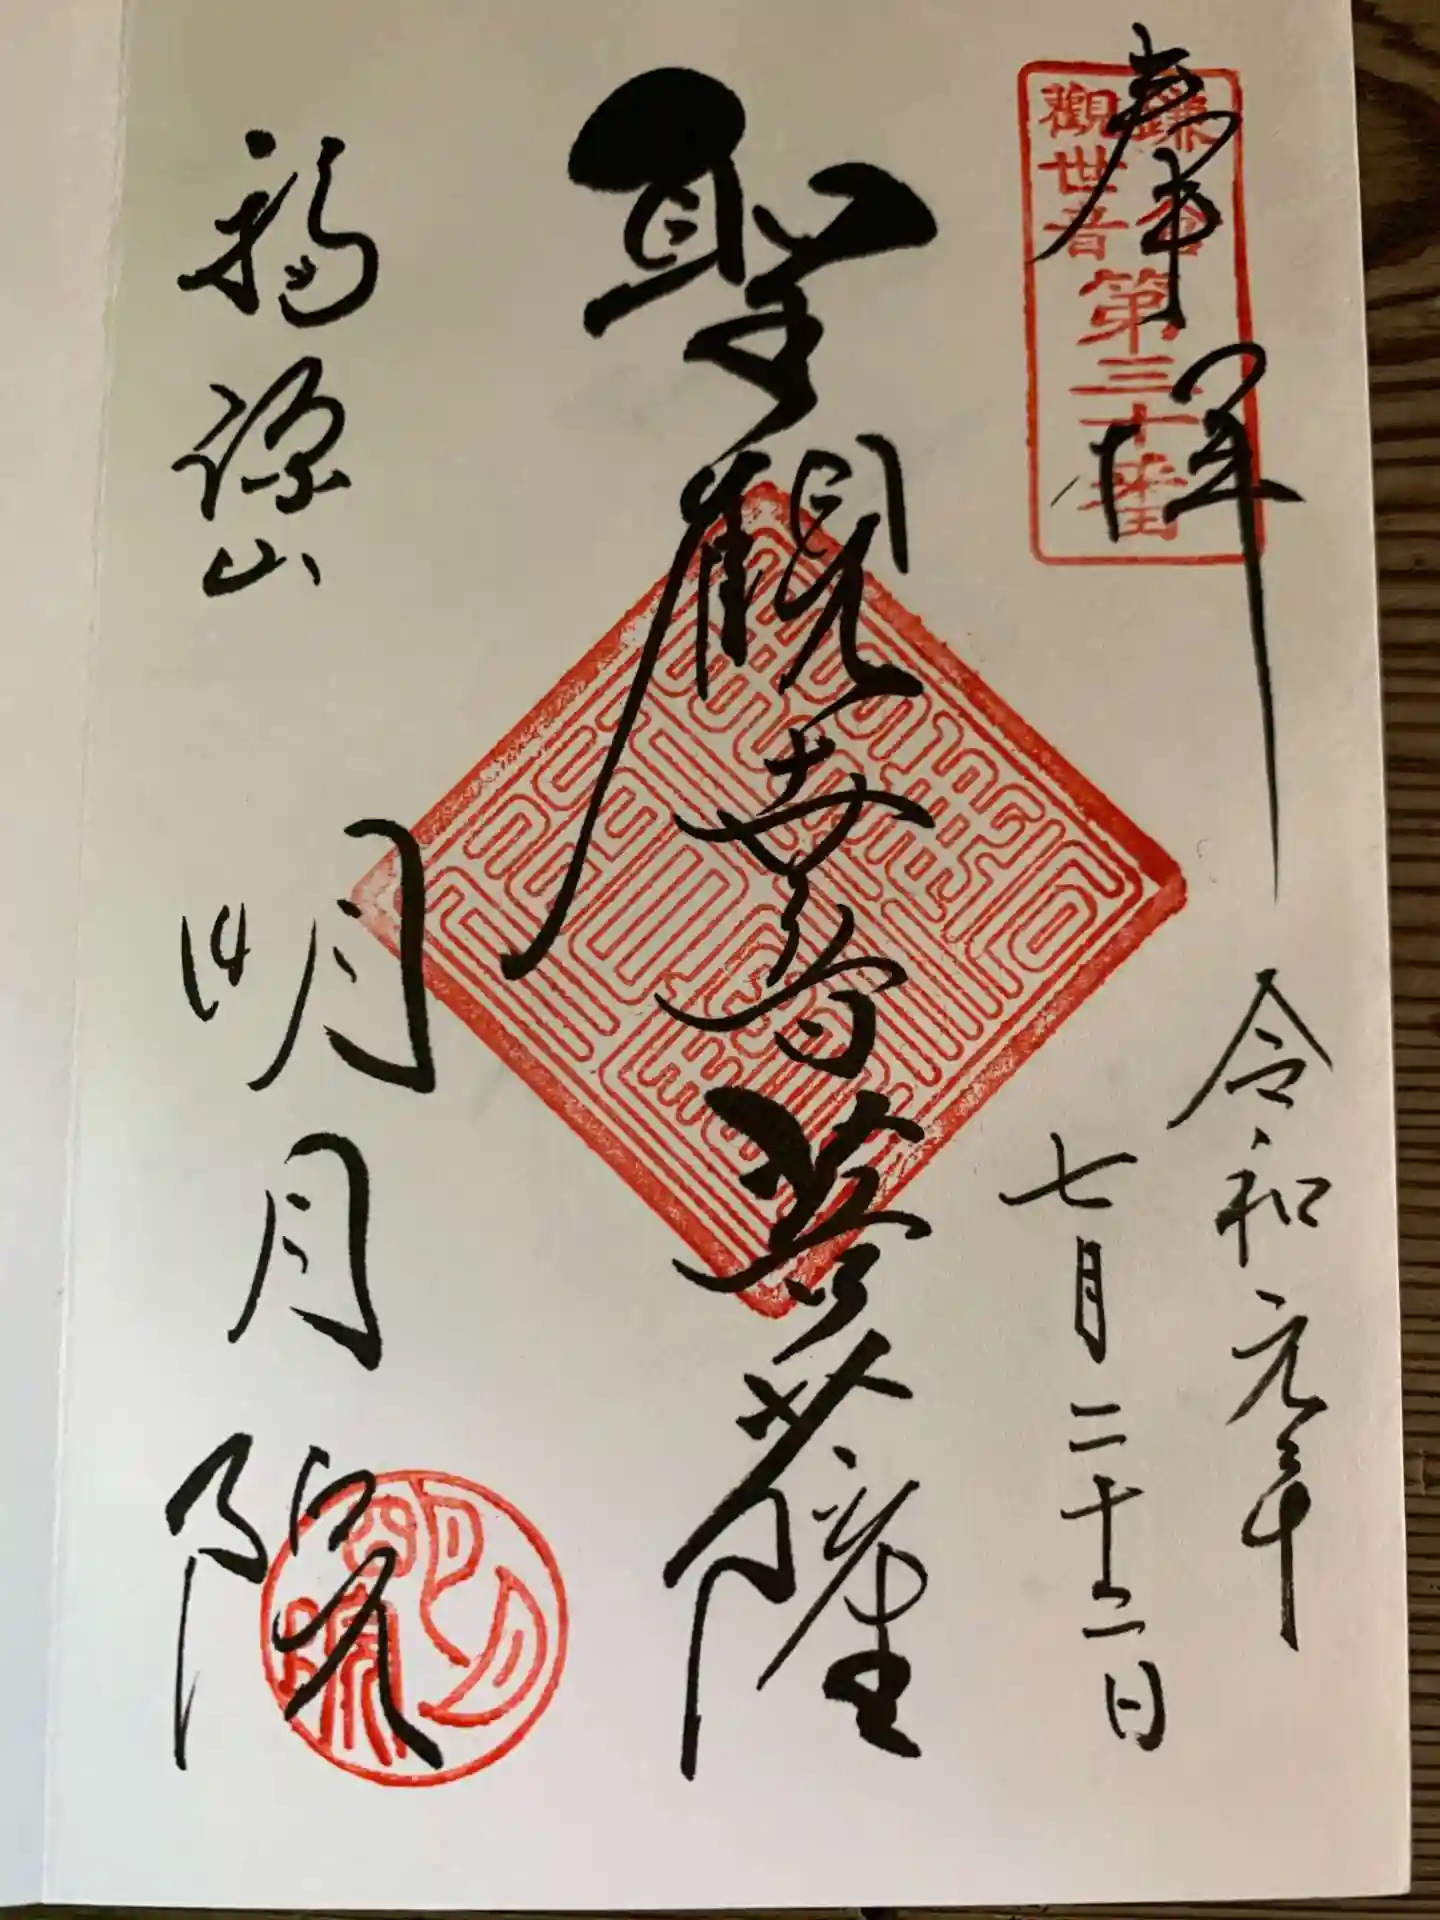 奉拝
鎌倉
觀世音
第三十番
令和元年
七月二十二日
聖観世音菩薩
福源山
明月院